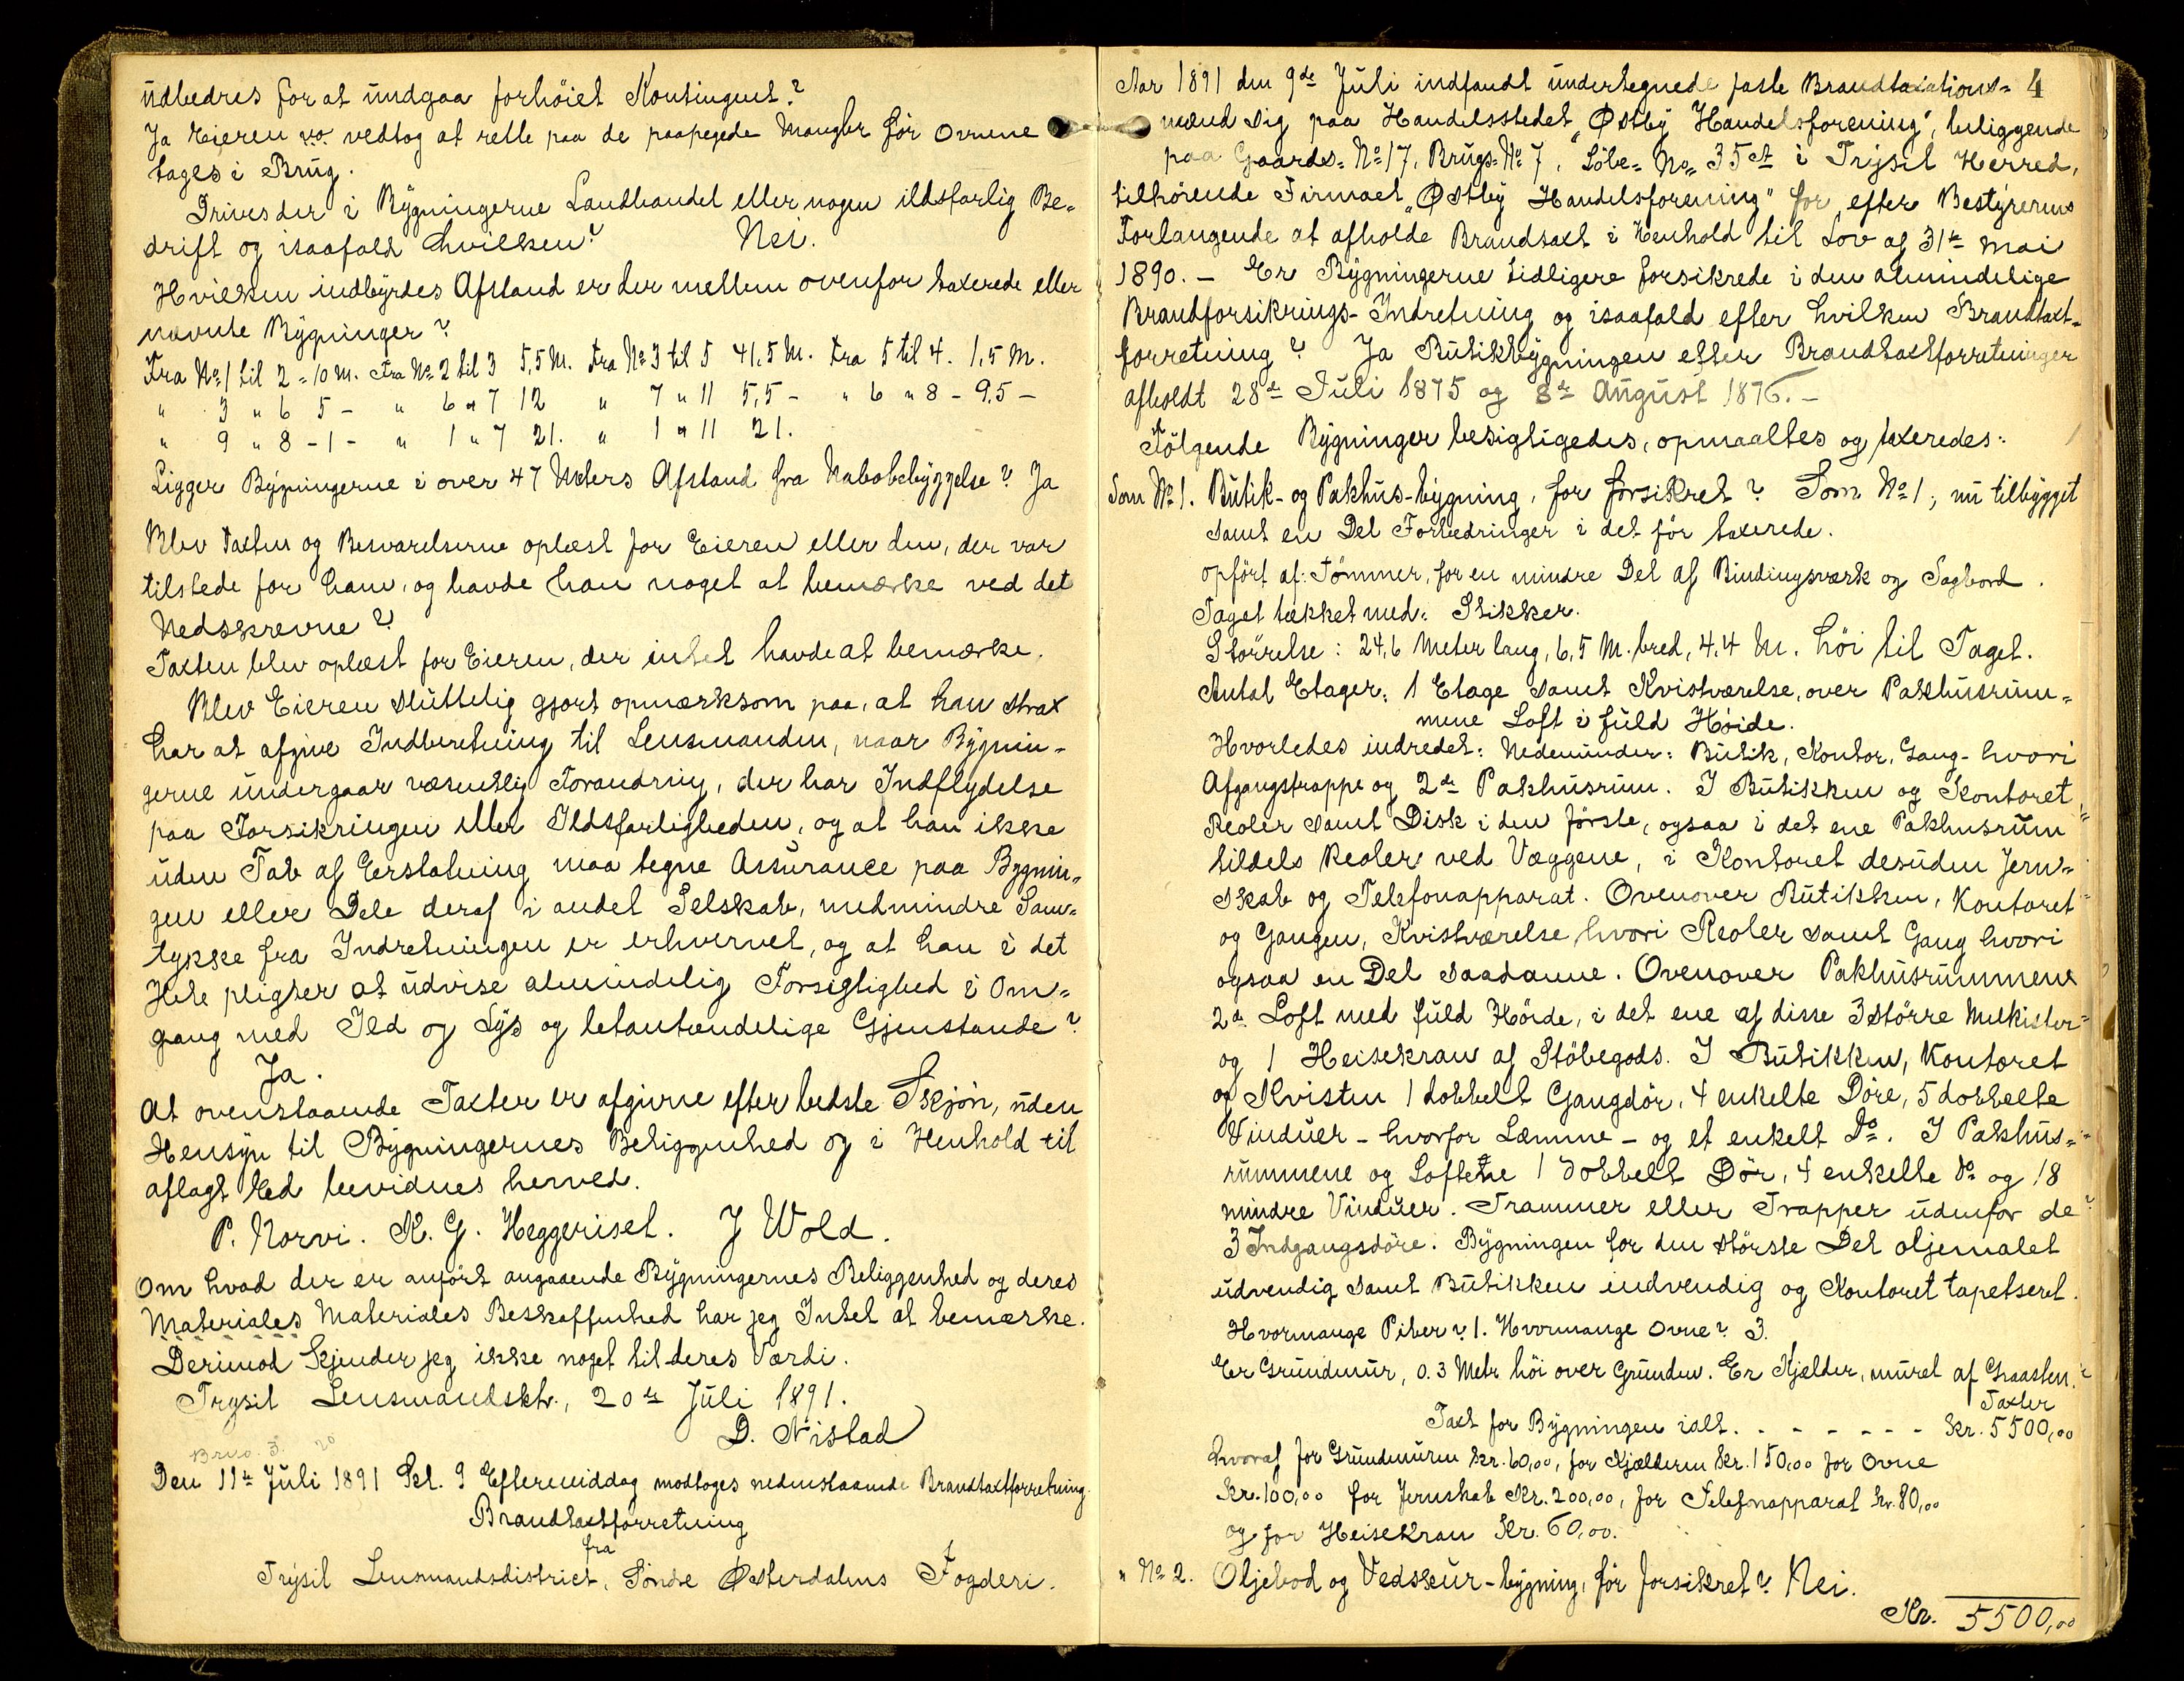 udbedres for at undgaa forhöiet Kontingent?
Ja Eieren vo vedtog at rette paa de paapegede Mangler för Ovnene
tages i Brug.
Drives der i Bygningerne Landhandel eller nogen ildsfarlig Be-
drift og isaafald hvilken? Nei.
Hvilken indbyrdes Afstand er der mellem ovenfor taxerede eller
nævnte Bygninger?
Fra No 1 til 2 = 10 M. Fra No 2 til 3 5,5 M. Fra No 3 til 5 41,5 M. Fra 5 til 4. 1,5 M.
" 3 " 6 5 - " 6 " 7 12 " 7 " 11 5,5 - " 6 " 8 - 9,5 -
" 9 " 8 - 1 - " 1 " 7 21. " 1 " 11 21.
Ligger Bygningerne i over 47 Meters Afstand fra Nabobebyggelse? Ja
Blev Taxten og Besvarelserne oplæst for Eieren eller den, der var
tilstede for ham, og havde han noget at bemærke ved det
Nedskrevne?
Taxten blev oplæst for Eieren, der intet havde at bemærke.
Blev Eieren sluttelig gjort opmærksom paa, at han strax
har at afgive Indberetning til Lensmanden, naar Bygnin-
gerne undergaar væsentlig Forandring, der har Indflydelse
paa Forsikringen eller Ildsfarligheden, og at han ikke
uden Tab af Erstatning maa tegne Assurance paa Bygnin-
gen eller Dele deraf i andet Selskab, medmindre Sam-
tykke fra Indretningen er erhvervet, og at han i det
Hele pligter at udvise almindelig Forsigtighed i Om-
gang med Ild og Lys og letantændelige Gjenstande?
Ja.
At ovenstaaende Taxter er afgivne efter bedste Skjön, uden
Hensyn til Bygningernes Beliggenhed og i Henhold til
aflagt Ed bevidnes herved.
P. Norvi. K. G. Heggeriset. J Wold.
Om hvad der er anfört angaaende Bygningernes Beliggenhed og deres
Materiales Materiales Beskaffenhed har jeg Intet at bemærke.
Derimod kjender jeg ikke noget til deres Værdi.
Trysil Lensmandsktr., 20de Juli 1891.
D. Nistad
Den 11te Juli 1891 Kl. 9 Eftermiddag modtoges nedenstaaende Brandtaxtforretning.
Brandtaxtforretning
fra
Trysil Lensmandsdistrict, Söndre Østerdalens Fogderi.
4
Aar 1891 den 9de Juli indfandt undertegnede faste Brandtaxations-
mænd sig paa Handelsstedet "Østby Handelsforening", beliggende
paa Gaards-No 17, Brugs-No 7, Löbe-No 35 a i Trysil Herred,
tilhörende Firmaet "Østby Handelsforening" for efter Bestyrerens
Forlangende at afholde Brandtaxt i Henhold til Lov af 31te Mai
1890. - Er Bygningerne tidligere forsikrede i den almindelige
Brandforsikrings-Indretning og isaafald efter hvilken Brandtaxt-
forretning? Ja Butikbygningen efter Brandtaxtforretninger
afholdt 28de Juli 1875 og 8de August 1876. -
Fölgende Bygninger besigtigedes, opmaaltes og taxeredes:
Som No 1. Butik- og Pakhus-bygning, för forsikret? Som No 1, nu tilbygget
samt en Del Forbedringer i det för taxerede.
opfört af: Tömmer, for en mindre Del af Bindingsværk og Sagbord.
Taget tækket med: Stikker.
Störrelse: 24,6 Meter lang, 6,5 M. bred, 4,4 M. höi til Taget.
Antal Etager: 1 Etage samt Kvistværelse, over Pakhusrum-
mene Loft i fuld Höide.
Hvorledes indredet: Nedenunder: Butik, Kontor, Gang - hvori
Afgangstrappe og 2de Pakhusrum. I Butikken og Kontoret
Reoler samt Disk i den förste, ogsaa i det ene Pakhusrum
tildels Reoler ved Væggene, i Kontoret desuden Jern-
skab og Telefonapparat. Ovenover Butikken, Kontoret
og Gangen, Kvistværelse hvori Reoler samt Gang hvori
ogsaa en Del saadanne. Ovenover Pakhusrummene
2de Loft med fuld Höide, i det ene af disse 3 större Melkister
og 1 Heisekran af Stöbegods. I Butikken, Kontoret
og Kvisten 1 dobbelt Gangdör, 4 enkelte Döre, 5 dobbelte
Vinduer - hvorfor Lemme - og et enkelt Do. I Pakhus-
rummene og Loftene 1 dobbelt Dör, 4 enkelte Do og 18
mindre Vinduer. Trammer eller Trapper udenfor de
3 Indgangsdöre. Bygningen for den störste Del oljemalet
udvendig samt Butikken indvendig og Kontoret tapetseret.
Hvormange Piber? 1. Hvormange Ovne? 3.
Er Grundmur, 0.3 Metr höi over Grunden. Er Kjælder, muret af Graasten.
Taxter
Taxt for Bygningen ialt. - - - - - - Kr. 5500,00
hvoraf for Grundmuren Kr. 60,00, for Kjælderen Kr. 150,00 for Ovne
Kr. 100,00 for Jernskab Kr. 200,00, for Telefonapparat Kr. 80,00
og for Heisekran Kr. 60,00.
" No 2. Oljebod og Vedskur-bygning, för forsikret? Nei.
Kr. 5500,00